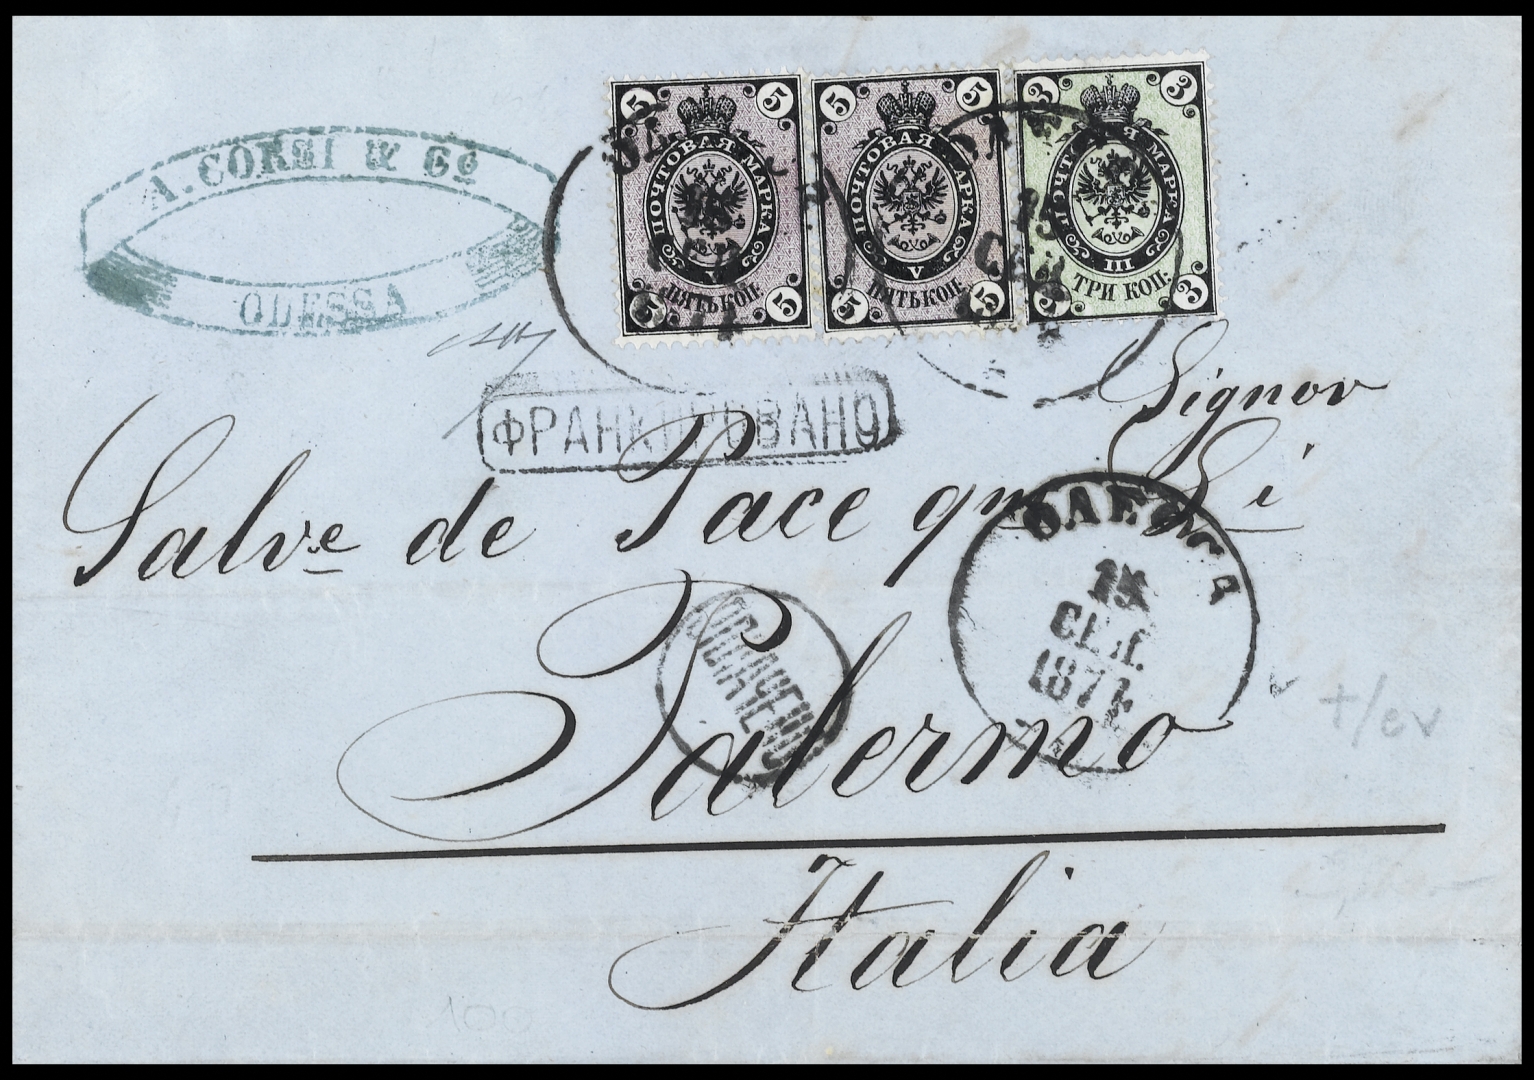 A. CORSI & Cº
ODESSA
5 5
ПОЧТОВАЯ МАРКА
V
ПЯТЬ КОП:
5 5
5 5
ПОЧТОВАЯ МАРКА
V
ПЯТЬ КОП:
5 5
3 3
ПОЧТОВАЯ МАРКА
III
ТРИ КОП:
3 3
ФРАНКИРОВАНО
Signor
Salv.e de Pace qm Di
ОДЕССА
СЕН.
187
Palermo
Italia
100